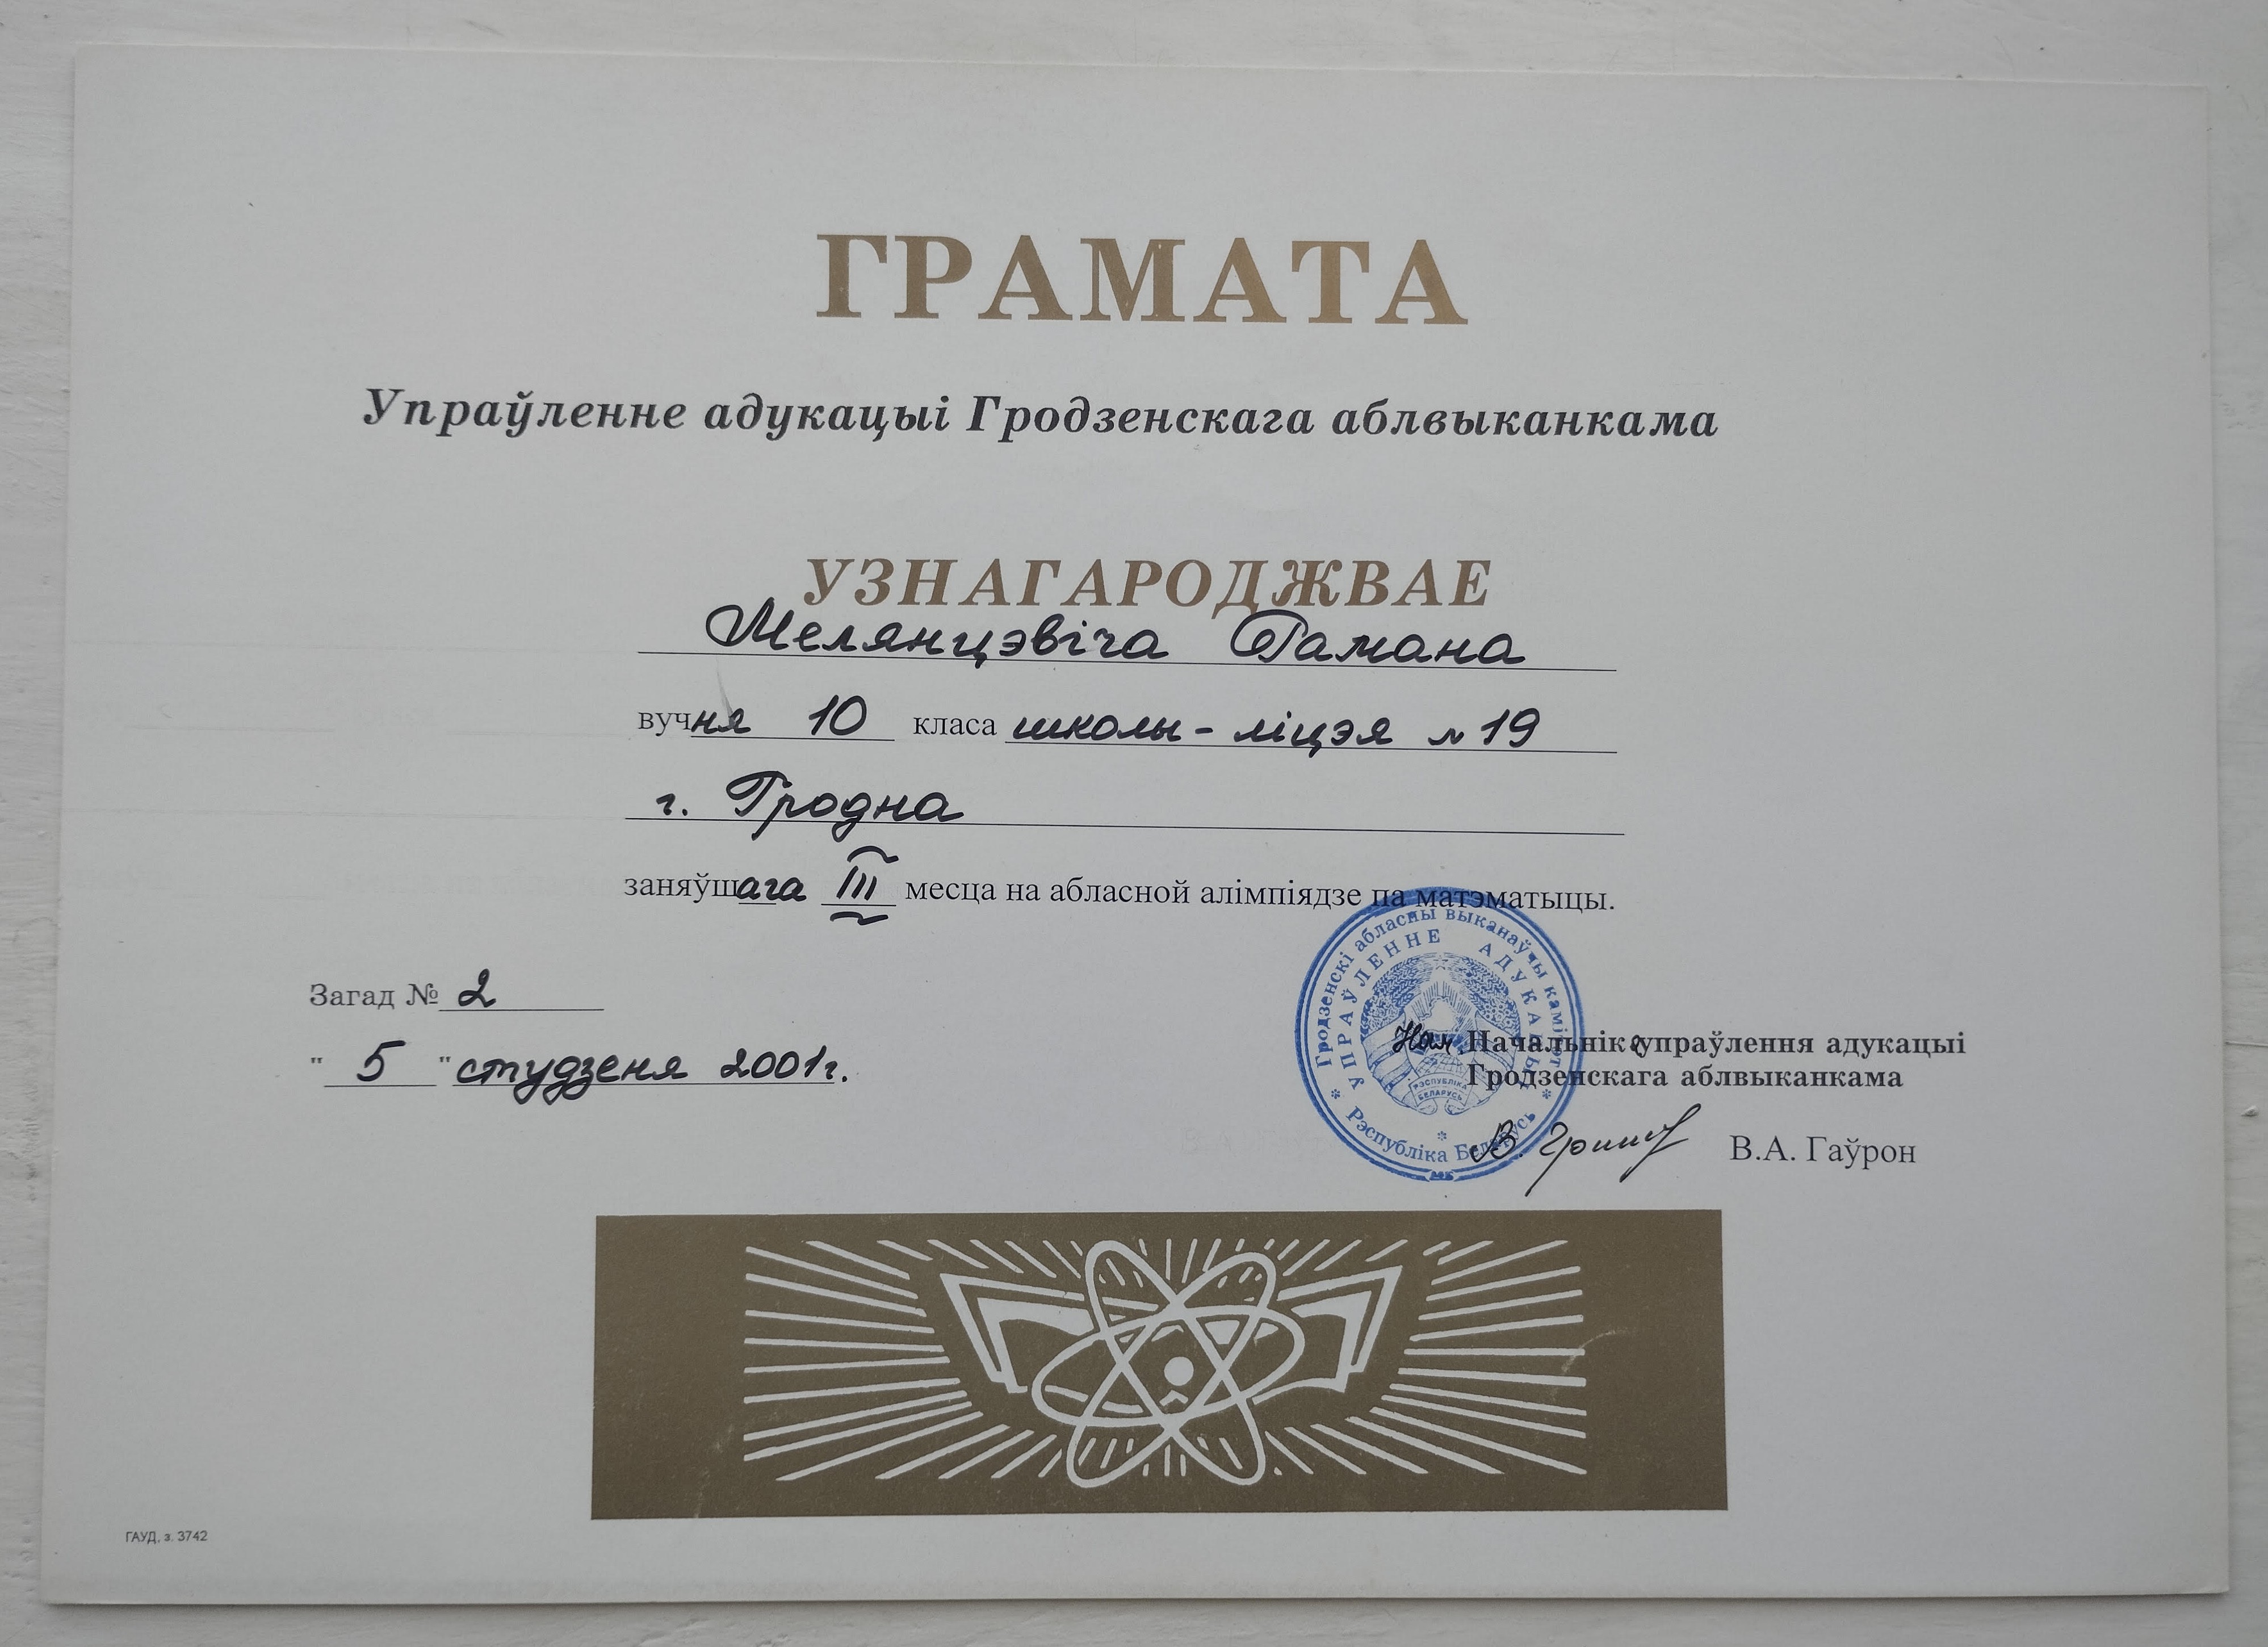 ГРАМАТА
Упраўленне адукацыі Гродзенскага аблвыканкама
УЗНАГАРОДЖВАЕ
Мелянцэвіча Рамана
вучня 10 класа школы-ліцэя № 19
г. Гродна
заняўшага III месца на абласной алімпіядзе па матэматыцы.
Загад № 2
"5" студзеня 2001г.
Гродзенскі абласны выканаўчы камітэт
УПРАЎЛЕННЕ АДУКАЦЫІ
РЭСПУБЛІКА
БЕЛАРУСЬ
Рэспубліка Беларусь
Нам. Начальніка упраўлення адукацыі
Гродзенскага аблвыканкама
В.А. Гаўрон
ГАУД, з. 3742